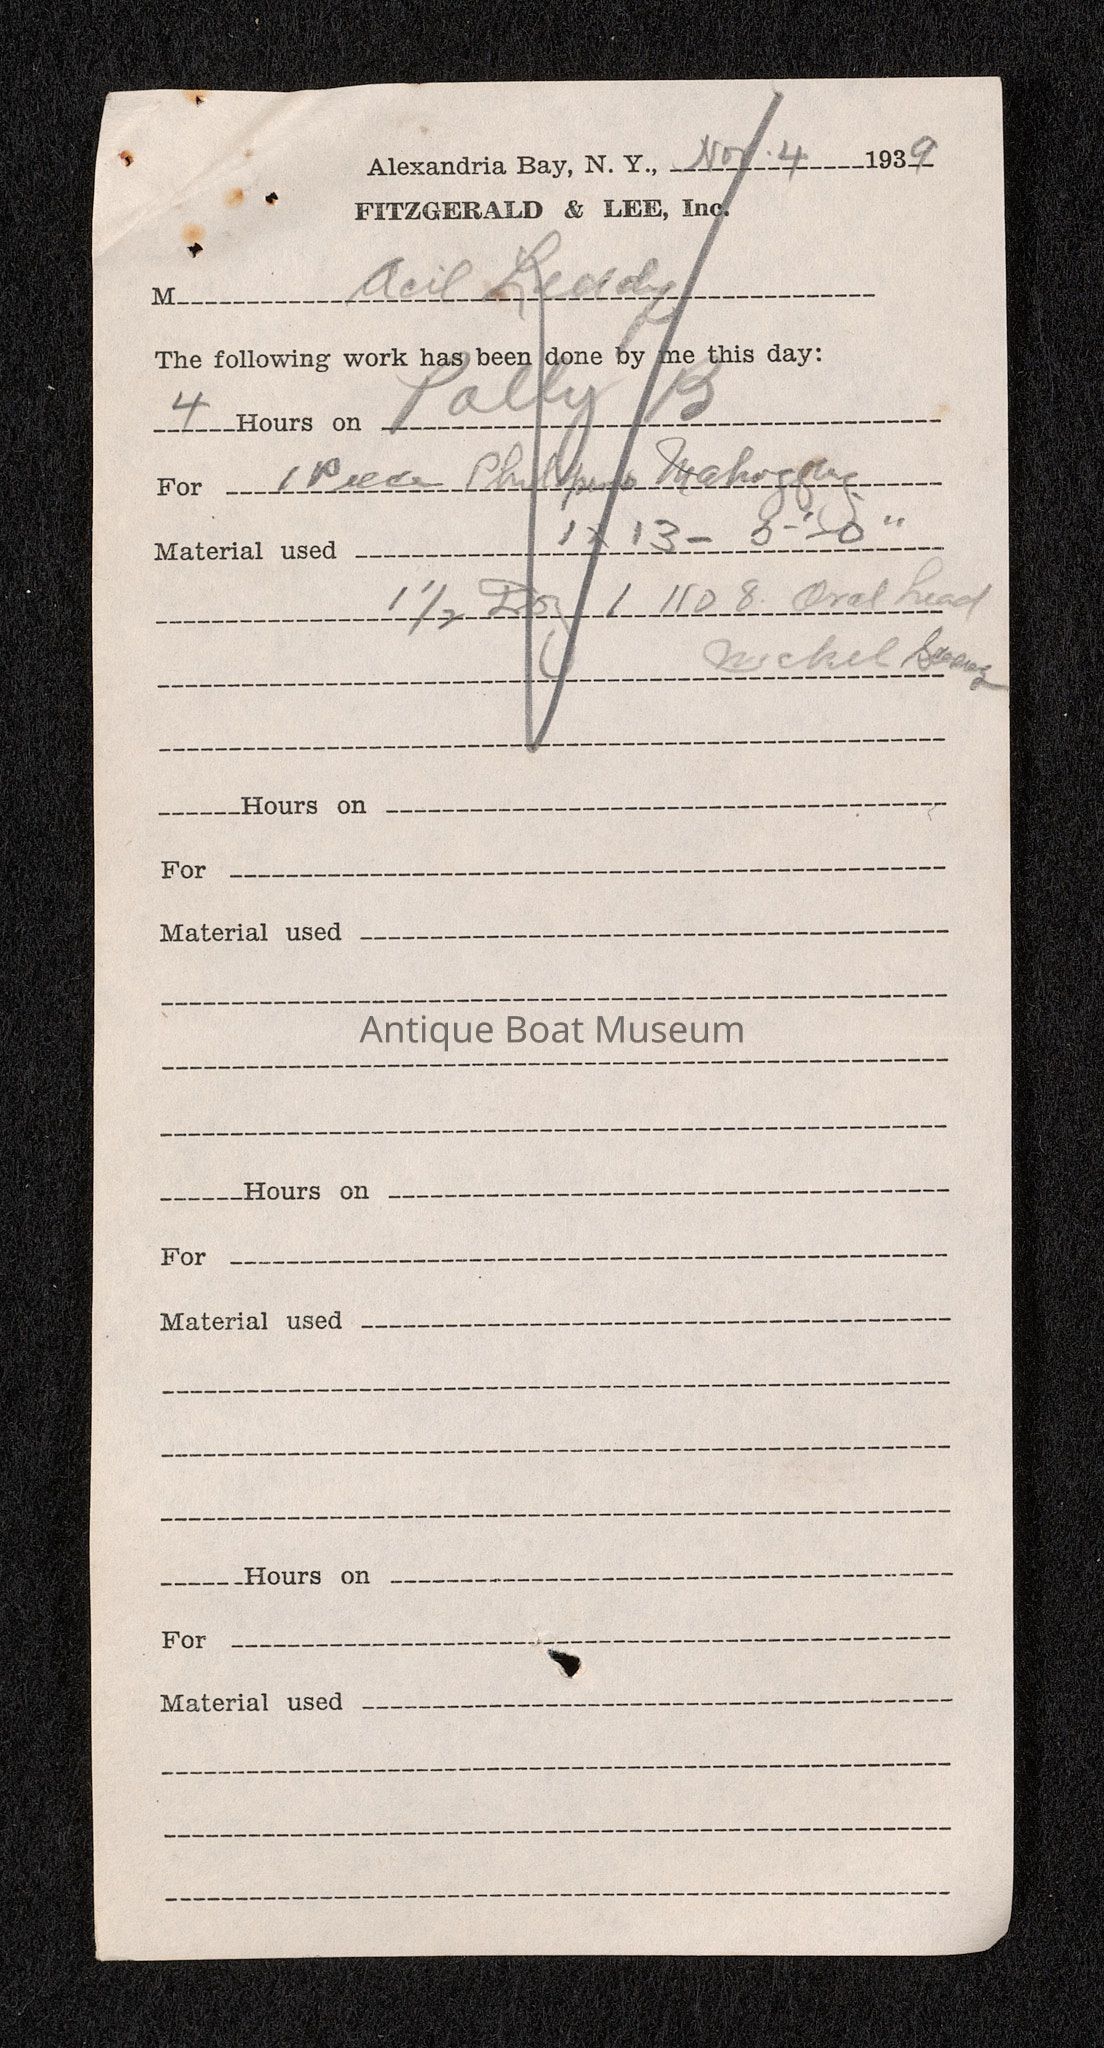 Alexandria Bay, N. Y., Nov. 4 1939
FITZGERALD & LEE, Inc.
M Acil Leddy
The following work has been done by me this day:
4 Hours on Polly B
For 1 Piece Philipino Mahogany
Material used 1 x 13 -
1 1/2 Doz 1 No 8. Oval head
Nickel
Hours on
For
Material used
Antique Boat Museum
Hours on
For
Material used
Hours on
For
Material used